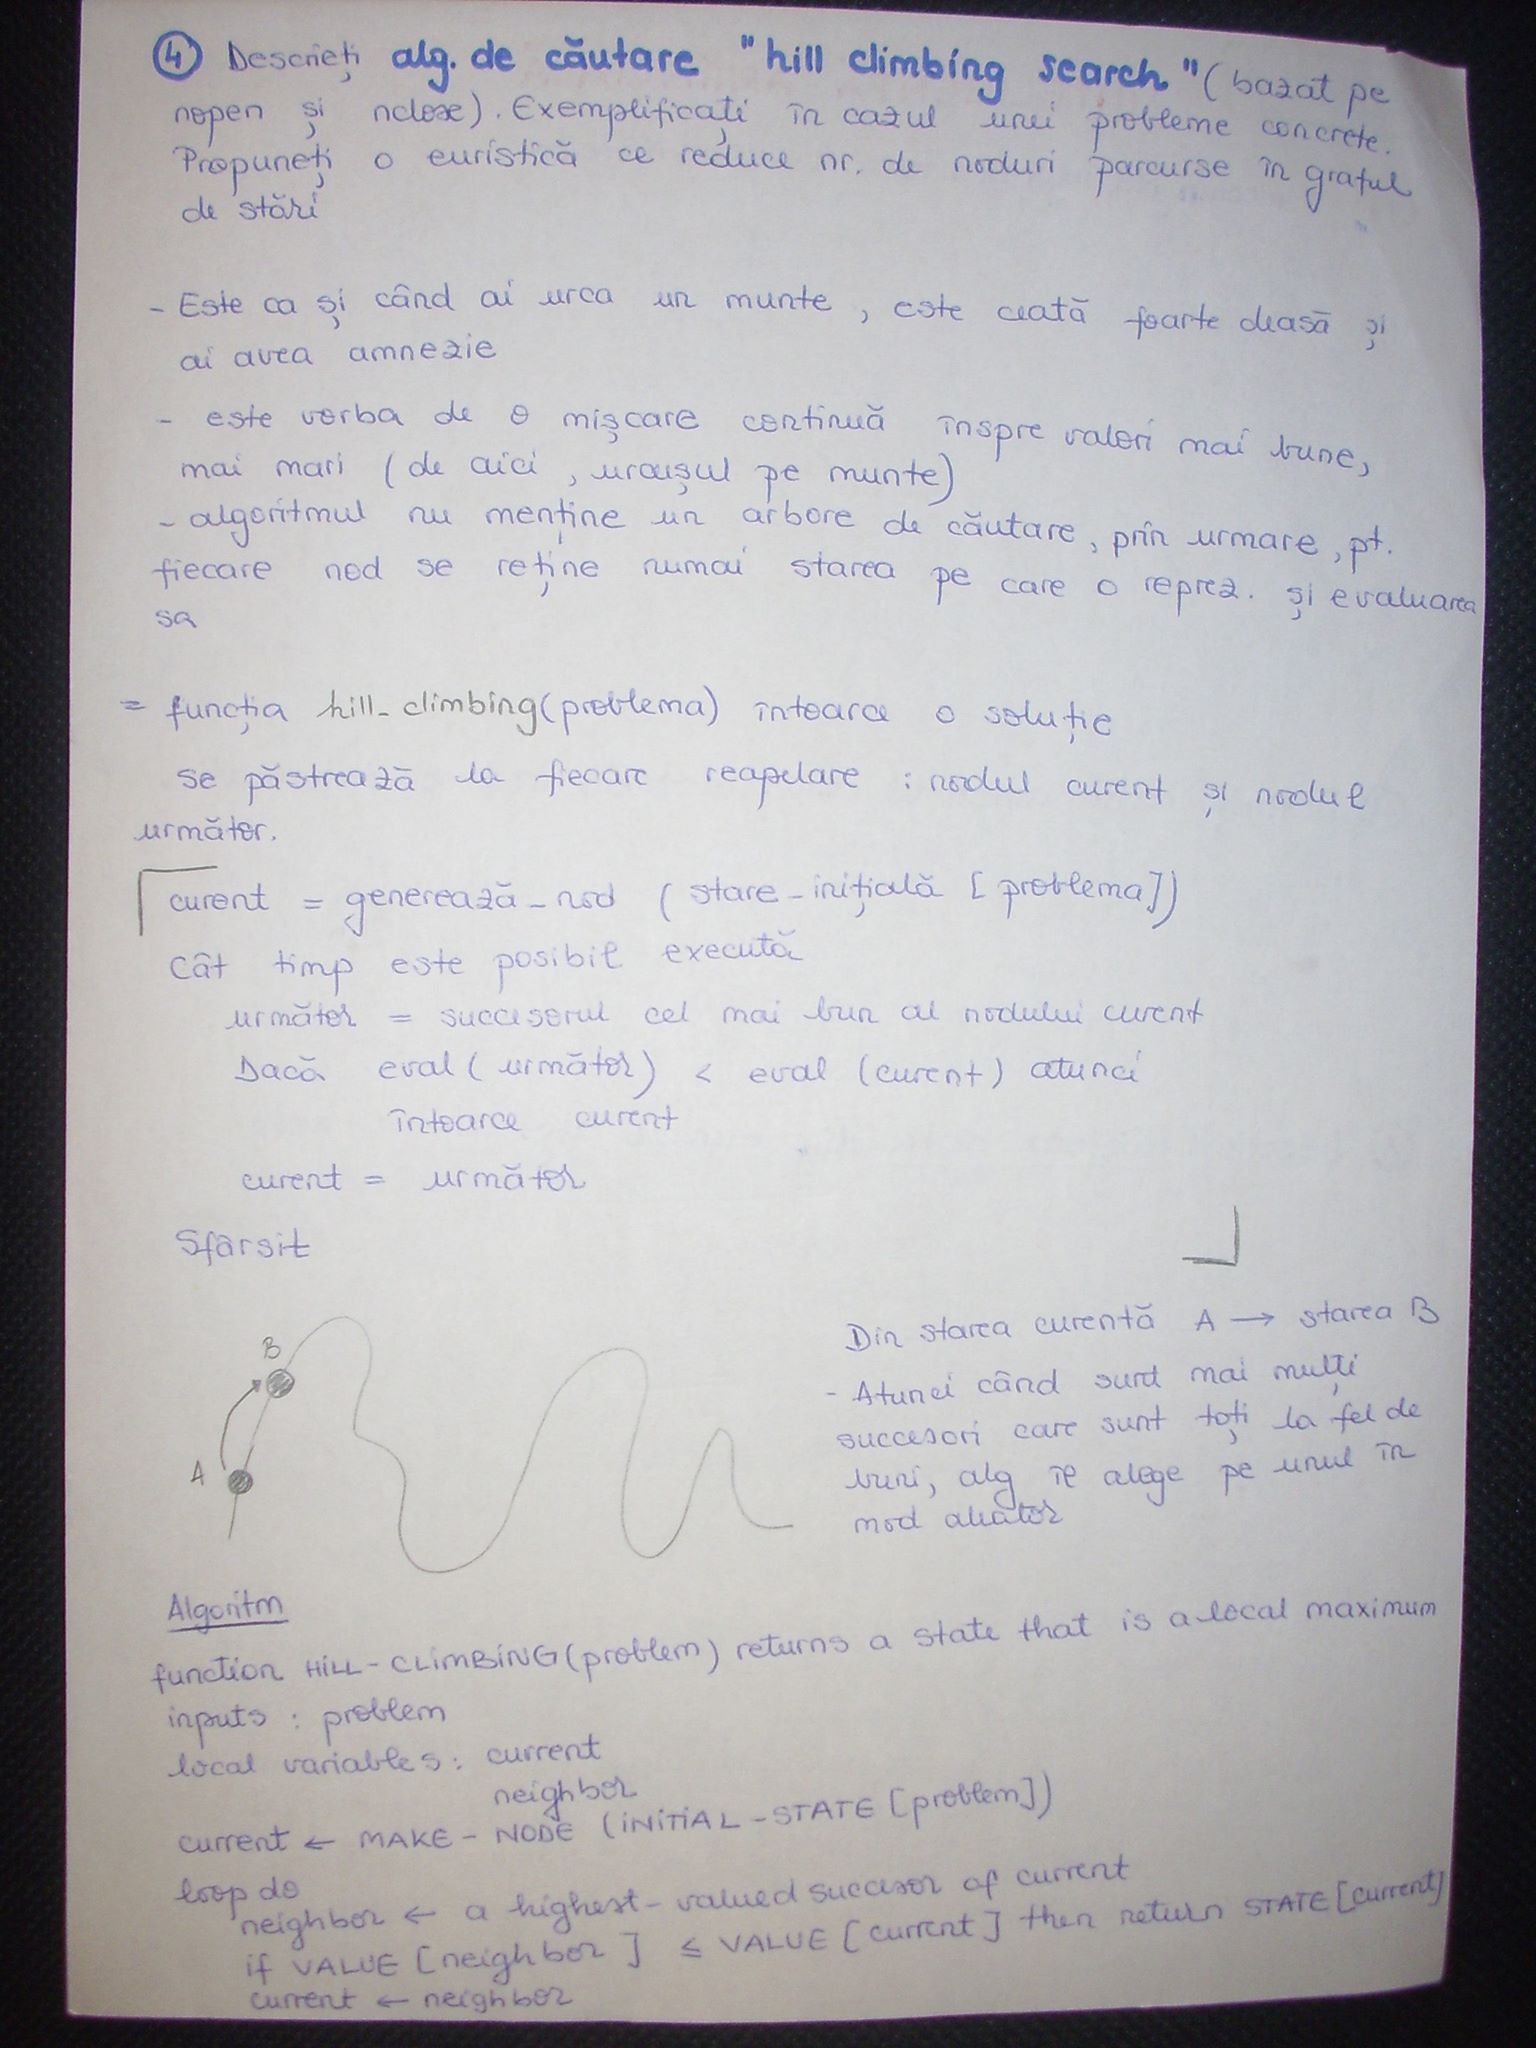 4 Descrieți alg. de căutare "hill climbing search" (bazat pe
nopen și nclose). Exemplificați în cazul unei probleme concrete.
Propuneți o euristică ce reduce nr. de noduri parcurse în graful
de stări
- Este ca și când ai urca un munte, este ceată foarte deasă și
ai avea amnezie
- este vorba de o mișcare continuă înspre valori mai bune,
mai mari (de aici, urcușul pe munte)
- algoritmul nu menține un arbore de căutare, prin urmare, pt.
fiecare nod se reține numai starea pe care o reprez. și evaluarea
sa
= funcția hill-climbing(problema) întoarce o soluție
se păstrează la fiecare reapelare : nodul curent și nodul
următor.
curent = generează-nod (stare-inițială [problema])
Cât timp este posibil execută
următor = succesorul cel mai bun al nodului curent
Dacă eval(următor) < eval(curent) atunci
întoarce curent
curent = următor
Sfârsit
B
A
Din starea curentă A → starea B
- Atunci când sunt mai mulți
succesori care sunt toți la fel de
buni, alg îl alege pe unul în
mod aleator
Algoritm
function HILL-CLIMBING(problem) returns a state that is a local maximum
inputs : problem
local variables : current
neighbor
current ← MAKE-NODE (INITIAL-STATE [problem])
loop do
neighbor ← a highest-valued succesor of current
if VALUE [neighbor] ≤ VALUE [current] then return STATE [current]
current ← neighbor